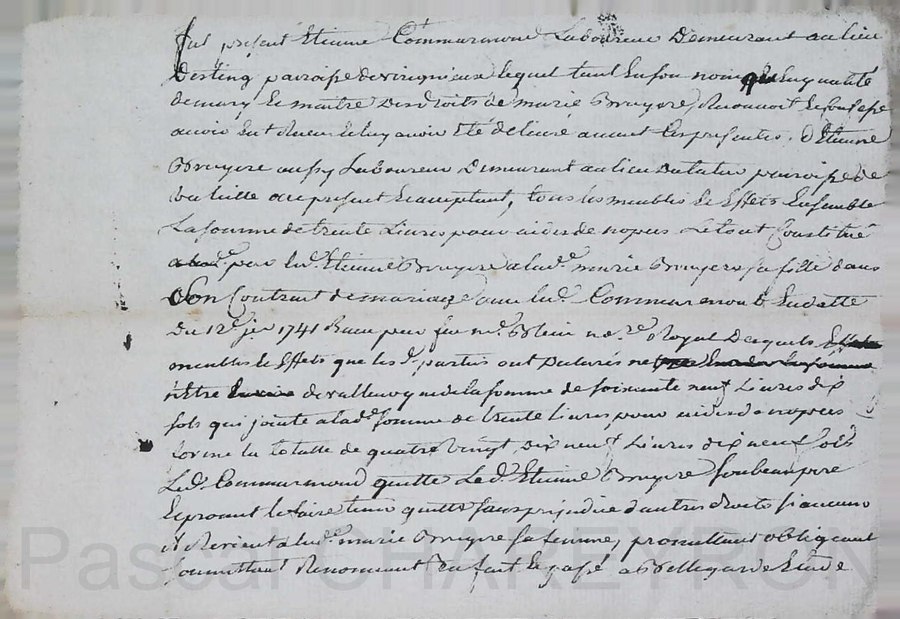 fut présent Etienne Commarmond Laboureur Demeurant au lieu
Desting paroisse de virignieux lequel tant en son nom que En quallité
de mary Et maitre Des droits de marie Bruyere, Reconnoit Et Confesse
avoir Eut Receu Et luy avoir Eté delivré avant Les presentes, d'Etienne
Bruyere aussy Laboureur Demeurant au lieu paroisse de
ou present Eacceptant, tous les meubles Et Effets Ensemble
La somme de trente Livres pour aides de nopces Le tout Constitué
par led. Etienne Bruyere a lad.e marie Bruyere sa fille dans
son Contrat de mariage avec led. Commarmond En datte
Du 12e jer 1741 Receu par feu me Blein no.re Royal Desquels
meubles Et Effets que les d. parties ont Declarés ne
n'être de valleur que de la somme de soixante neuf Livres dix
sols qui jointe a lad.e somme de trente Livres pour aides de nopces
forme la totalle de quatre vingt Dix neuf Livres dix neuf sols
Led. Commarmond quitte Le d. Etienne Bruyere son beaupere
Et promet le faire tenir quitte sans prejudice d'autres droits si aucuns
il Revient a lad.e marie Bruyere sa femme, promettant obligeant
soumettant Renonceant &a fait Et passé a Bellegarde Etude
Pascal CHAREYRON